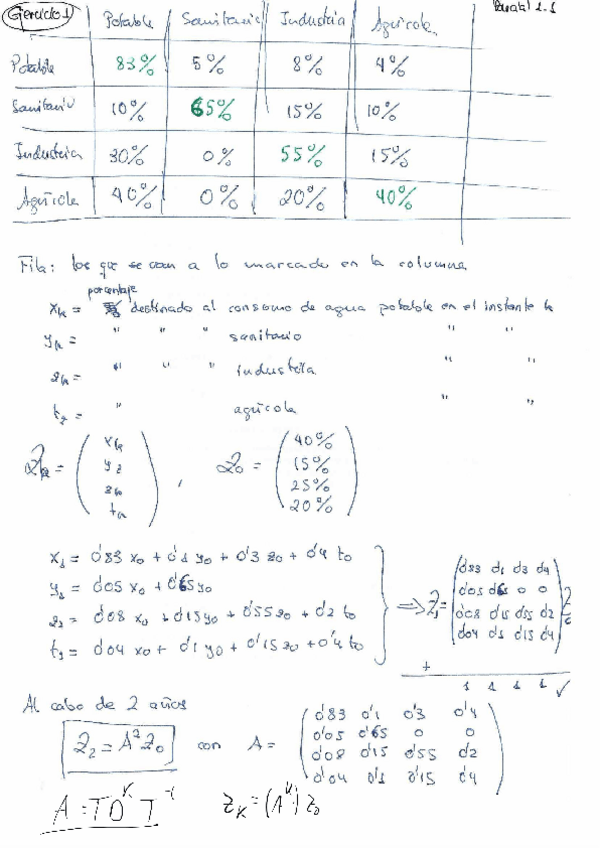 Ejercicio 1 Parcial 2.1
Potable Sanitario Industria Agrícola
Potable 83% 5% 8% 4%
Sanitario 10% 65% 15% 10%
Industria 30% 0% 55% 15%
Agrícola 40% 0% 20% 40%
Fila: los que se van a lo marcado en la columna
porcentaje
xk = destinado al consumo de agua potable en el instante k
yk = " " " sanitario " "
zk = " " " industria " "
tk = " agrícola " "
Zk = ( xk yk zk tk ) , Z0 = ( 40% 15% 25% 20% )
x1 = 0'83 x0 + 0'1 y0 + 0'3 z0 + 0'4 t0
y1 = 0'05 x0 + 0'65 y0
z1 = 0'08 x0 + 0'15 y0 + 0'55 z0 + 0'2 t0
t1 = 0'04 x0 + 0'1 y0 + 0'15 z0 + 0'4 t0
=> Z1 = ( 0'83 0'1 0'3 0'4
0'05 0'65 0 0
0'08 0'15 0'55 0'2
0'04 0'1 0'15 0'4 ) Z0
+
1 1 1 1 ✓
Al cabo de 2 años
Z2 = A² Z0 con A = ( 0'83 0'1 0'3 0'4
0'05 0'65 0 0
0'08 0'15 0'55 0'2
0'04 0'1 0'15 0'4 )
A = T D^K T^-1 Zk = (A^K) Z0